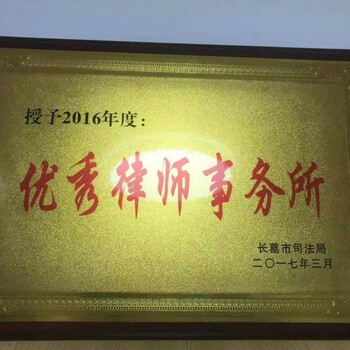 授予2016年度：
优秀律师事务所
长葛市司法局
二〇一七年三月